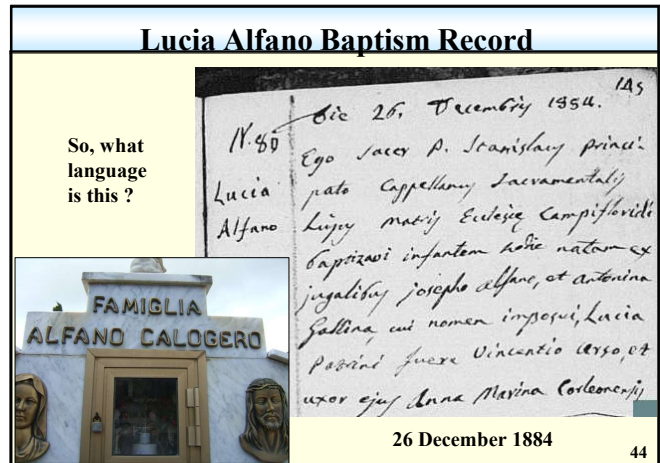 Lucia Alfano Baptism Record
So, what
language
is this ?
145
Die 26, Decembris 1884.
N. 80
Lucia
Alfano
Ego Sacer P. Stanislaus Princi-
pato Cappellanus Sacramentalis
hujus matris Ecclesię Campifloridi
baptizavi infantem hodie natam ex
jugalibus josepho alfano, et antonina
Gallina, cui nomen imposui, Lucia
Patrini fuere Vincentio urso, et
uxor ejus Anna Marina Corleonensis
FAMIGLIA
ALFANO CALOGERO
26 December 1884
44